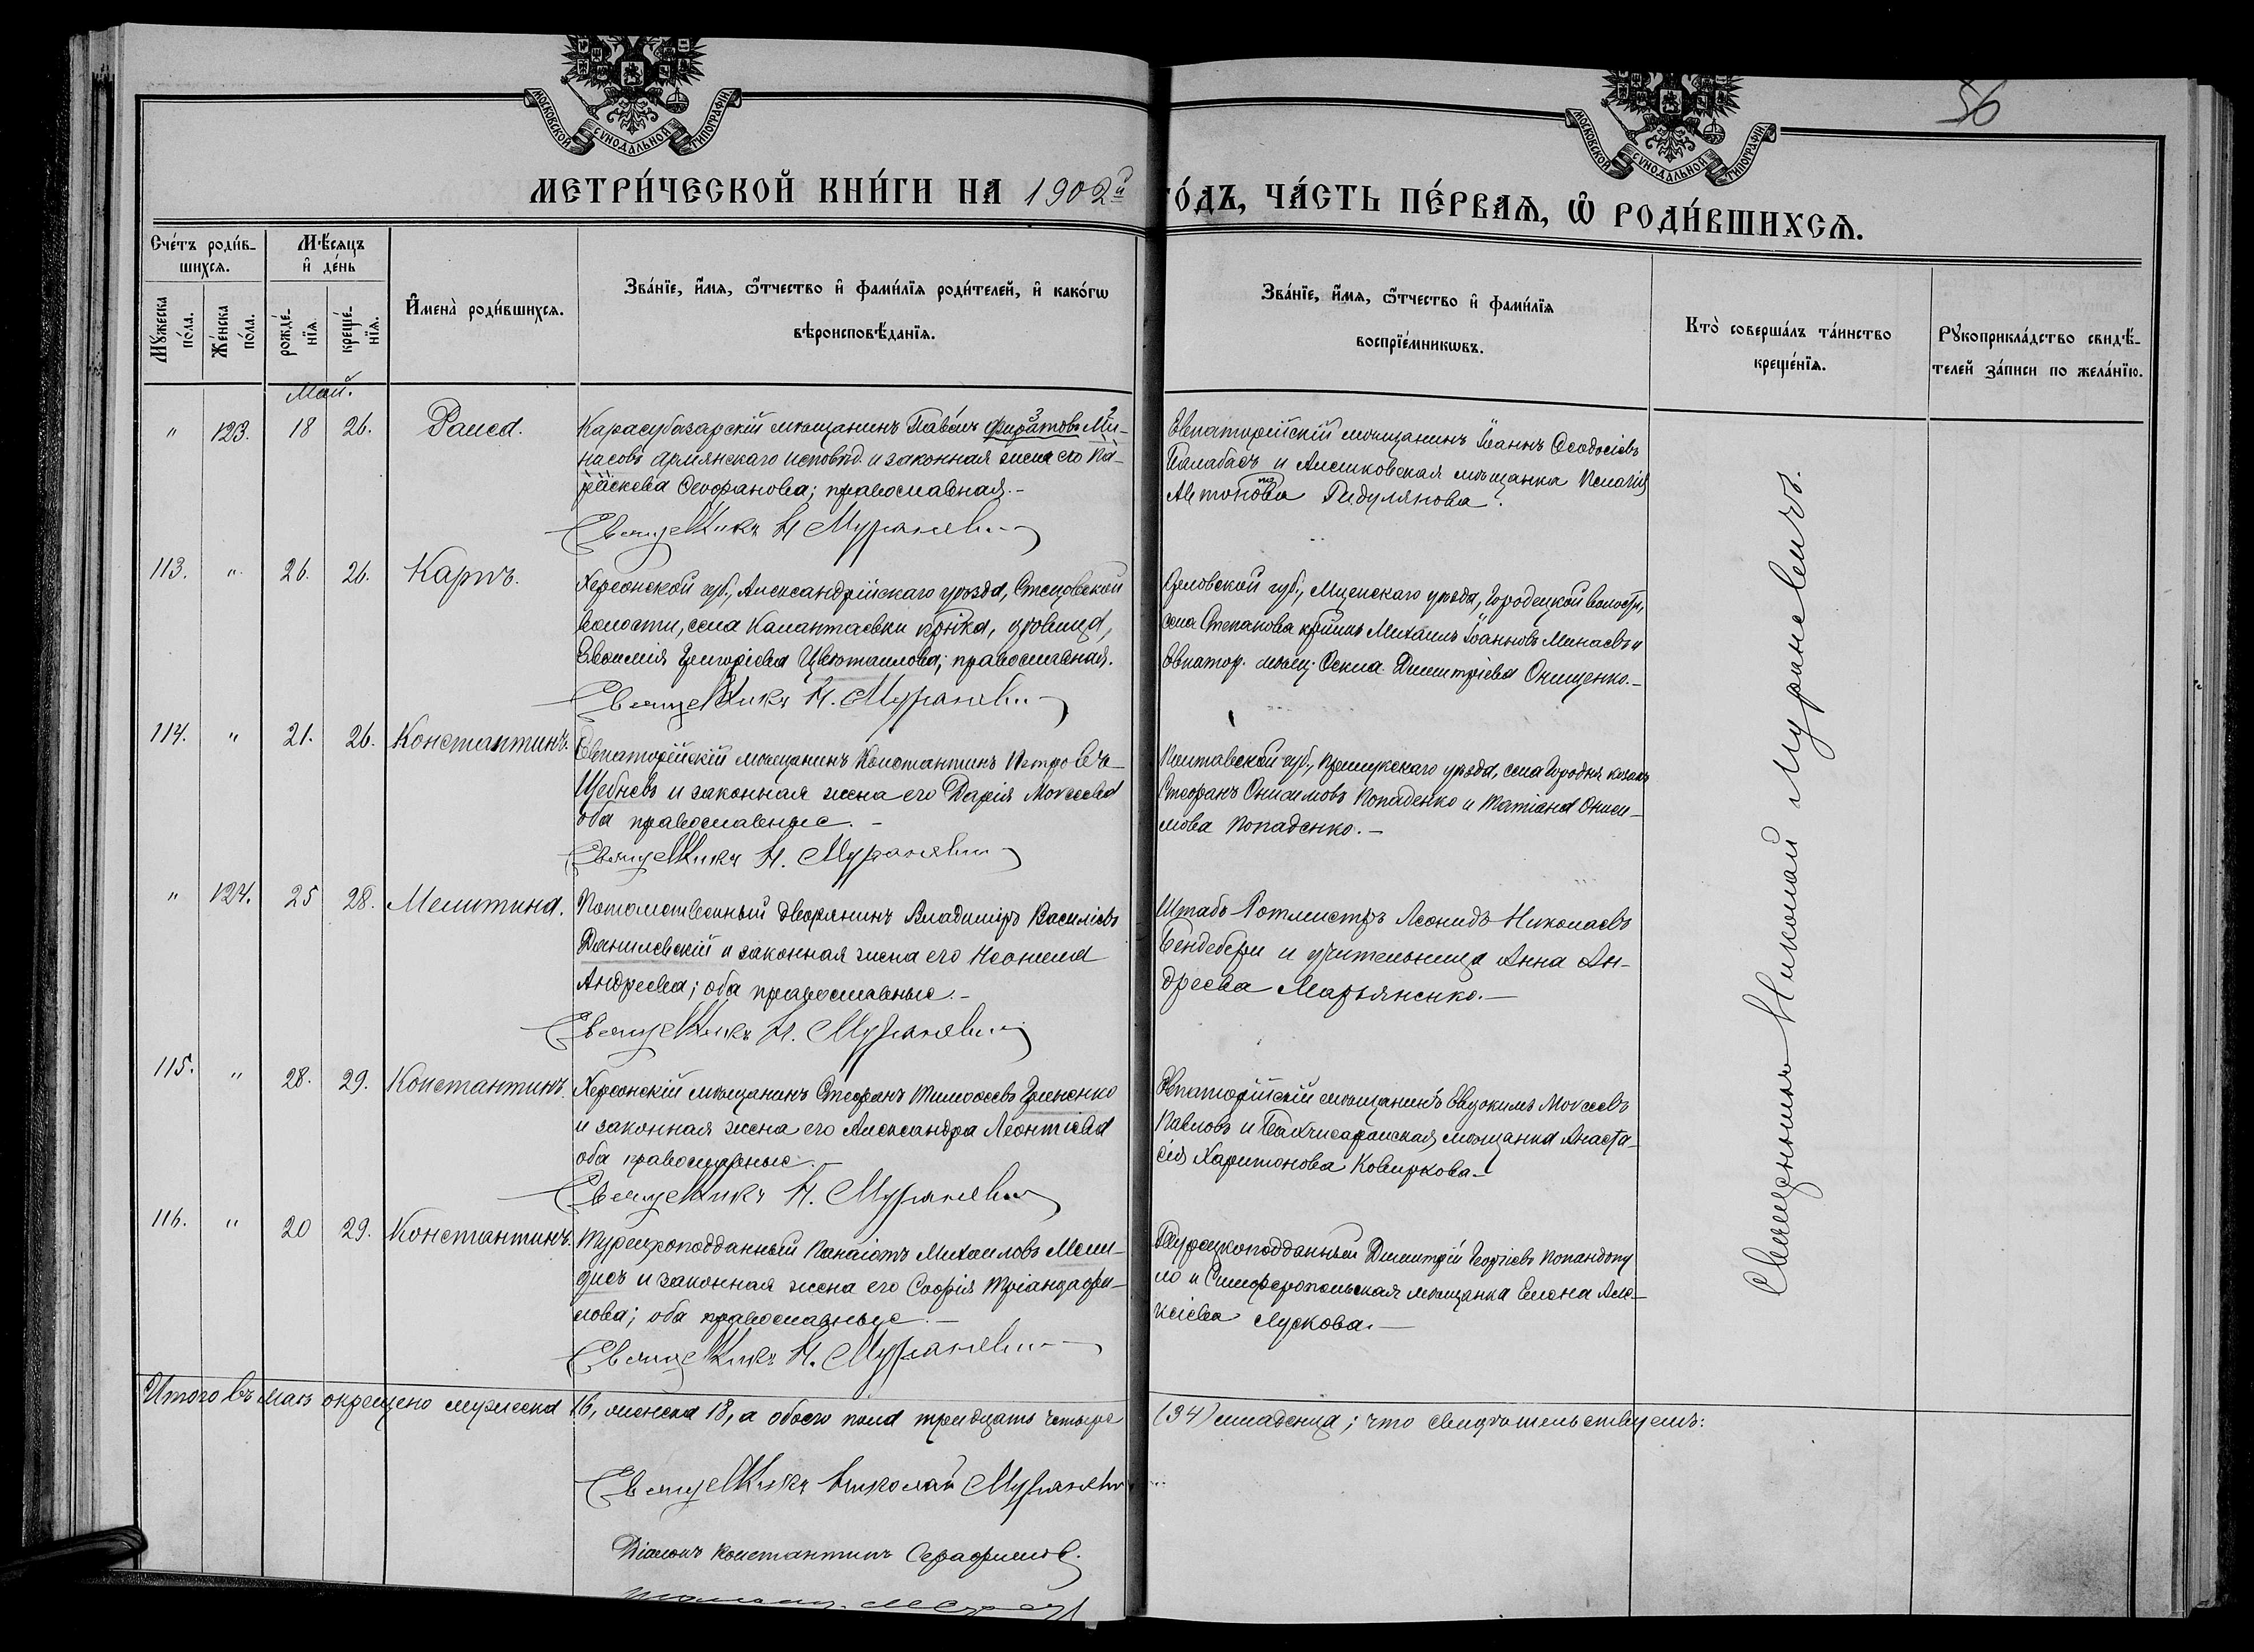 МОСКОВСКОЙ СѴНОДАЛЬНОЙ ТИПОГРАФІИ
МОСКОВСКОЙ СѴНОДАЛЬНОЙ ТИПОГРАФІИ
56
МЕТРИ́ЧЕСКОЙ КНИ́ГИ НА 1902й
ГО́ДЪ, ЧА́СТЬ ПЕ́РВАѦ, Ѡ҆ РОДИ́ВШИХСѦ.
Сче́тъ роди́в-
шихсѧ.
Мꙋ́жеска по́ла.
Же́нска по́ла.
Мѣ́сѧцъ
и҆ де́нь
рожде́-
нїѧ.
креще́-
нїѧ.
И҆мена̀ роди́вшихсѧ.
Зва́нїе, и҆́мѧ, ѻ҆́тчество и҆ фами́лїѧ роди́телей, и҆ како́гѡ
вѣроисповѣ́данїѧ.
Зва́нїе, и҆́мѧ, ѻ҆́тчество и҆ фами́лїѧ
воспрїе́мникѡвъ.
Кто̀ соверша́лъ та́инство
креще́нїѧ.
Рꙋкоприкла́дство свидѣ́-
телей за́писи по жела́нїю.
Май.
" 123. 18 26. Раиса.
Карасубазарскій мѣщанинъ Павелъ Ми-
насовъ армянскаго исповѣд. и законная жена его Па-
раскева Стефанова; православная.-
Священникъ Н Мураневичъ
Евпаторійскій мѣщанинъ Іоаннъ Ѳеодосіевъ
Балабасъ и Алешковская мѣщанка Пелагія
Антонова Гидулянова.
113. " 26. 26. Карпъ.
Херсонской губ., Александрійскаго уѣзда, Стецовской
волости, села Калантаевки крѣнка, дѣвица,
Евфимія Григоріева Цвѣтаилова; православная.
Священникъ Н. Мураневичъ
Орловской губ., Мценскаго уѣзда, Городецкой волости,
села Степанова крестьян. Михаилъ Іоанновъ Минаевъ и
Евпатор. мѣщ. Ѳекла Димитріева Онищенко.-
114. " 21. 26. Константинъ.
Евпаторійскій мѣщанинъ Константинъ Петровъ
Щебневъ и законная жена его Дарія Моѵсеева
оба православные.-
Священникъ Н. Мураневичъ
Полтавской губ., Кременчукскаго уѣзда, села Городня козакъ
Стефанъ Онисимовъ Попаденко и Татіана Ониси-
мова Попаденко.-
" 124. 25 28. Мелитина.
Потомственный дворянинъ Владиміръ Василіевъ
Данилевскій и законная жена его Неонила
Андреева; оба православные.-
Священникъ Н. Мураневичъ
Штабъ Ротмистръ Леонидъ Николаевъ
Бендебери и учительница Анна Ан-
дреева Марьяненко.-
115. " 28. 29. Константинъ.
Херсонскій мѣщанинъ Стефанъ Тимоѳеевъ Гриненко
и законная жена его Александра Леонтіева
оба православные.-
Священникъ Н. Мураневичъ
Евпаторійскій мѣщанинъ Евдокимъ Моѵсеевъ
Павловъ и Бахчисарайская мѣщанка Анаста-
сія Харитонова Ковыркова.-
116. " 20 29. Константинъ.
Турецкоподданный Панаіотъ Михаиловъ Мели-
дисъ и законная жена его Софія Тріандафи-
лова; оба православные.-
Священникъ Н. Мураневичъ
Турецкоподданный Димитрій Георгіевъ Попандопу
ло и Симферопольская мѣщанка Елена Але-
ксіева Лускова.-
Священникъ Николай Мураневичъ.
Итого въ маѣ окрещено мужеска 16, женска 18, а обоего пола тридцать четыре (34) младенца; что свидѣтельствуемъ:
Священникъ Николай Мураневичъ
Діаконъ Константинъ Серафимовъ.